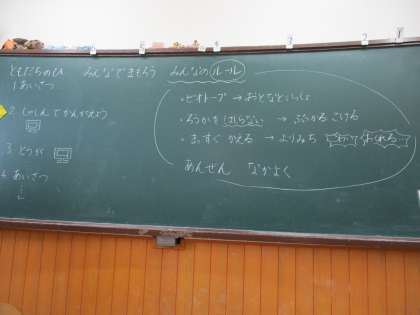 ともだちのひ みんなできめよう みんなのルール
1 あいさつ
2. しゃしんでかんがえよう
3. どうが
4. あいさつ
・ビオトープ → おとなといっしょ
・ろうかをはしらない → ぶつかる こける
・まっすぐ かえる → よりみち
あんぜん なかよく